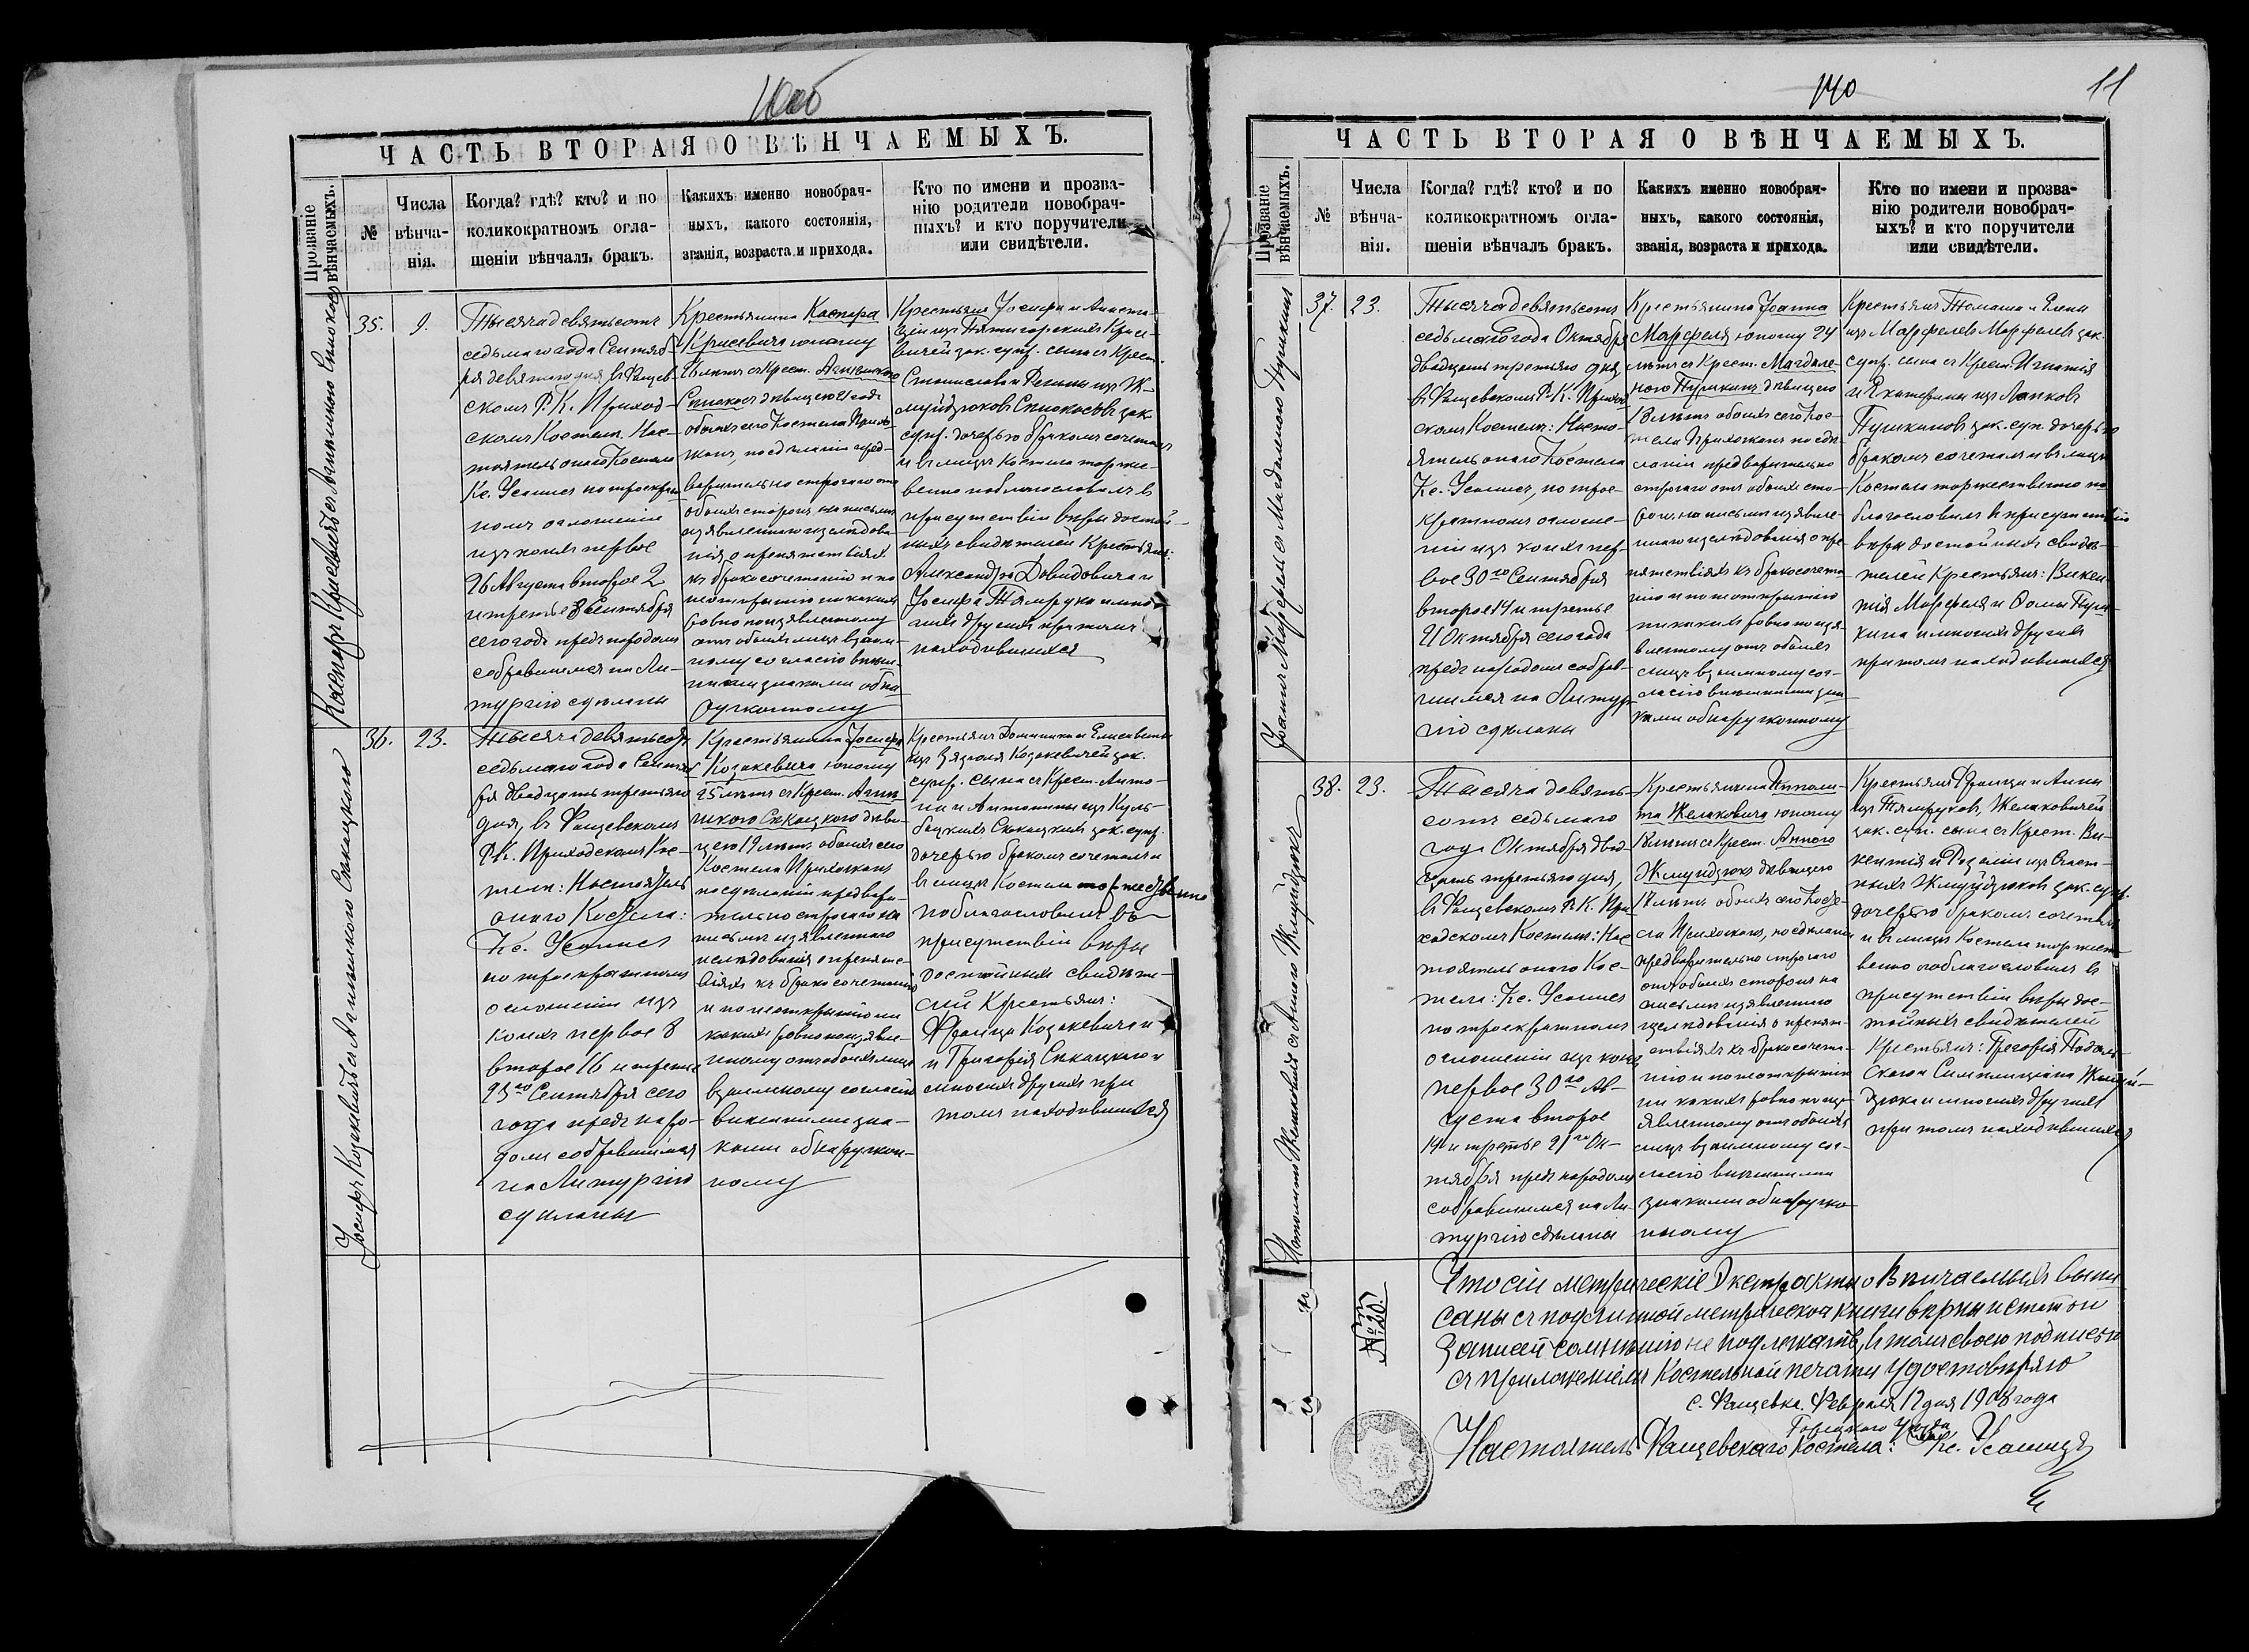 140об
ЧАСТЬ ВТОРАЯ О ВѢНЧАЕМЫХЪ.
Прозваніе вѣнчаемыхъ.
№
Числа вѣнча-
нія.
Когда? гдѣ? кто? и по
коликократномъ огла-
шеніи вѣнчалъ бракъ.
Какихъ именно новобрач-
ныхъ, какого состоянія,
званія, возраста и прихода.
Кто по имени и прозва-
нію родители новобрач-
ныхъ? и кто поручители
или свидѣтели.
35.
9.
Тысяча девятьсотъ
седьмаго года Сентяб-
ря девятаго дня, въ Фащев-
скомъ Р. К. Приход-
скомъ Костелѣ. Нас-
тоятель онаго Костела
Кс. Усаписъ по троекрат-
номъ оглашеніи
изъ коихъ первое
26 Августа второе 2
и третье 8 Сентября
сего года предъ народомъ
собравшимся на Ли-
тургію сдѣланы
Крестьянина Каспера
Крисевича юношу
лѣтъ съ Крест.
дѣвицею 21 года
обоихъ сего Костела Прихо-
жанъ, по сдѣланіи пред-
варительно строгаго отъ
обоихъ сторонъ, на письмѣ
изъявленнаго изслѣдова-
нія о препятствіяхъ
къ бракосочетанію и по
неоткрытію никакихъ
равно по изъявленному
отъ обоихъ лицъ взаим-
ному согласію внѣш-
ними знаками обна-
руженному
Крестьянъ Іосифа и Анаста-
зіи изъ Пятигорскихъ Крисе-
вичей зак. супр. сына съ Крест.
Станислава и Регины изъ Ж-
муйдзюковъ зак.
супр. дочерью бракомъ сочеталъ
и въ лицѣ Костела торже-
венно поблагословилъ въ
присутствіи вѣры достой-
ныхъ свидѣтелей Крестьянъ:
Александра Довидовича и
Іосифа Тямрука и мно-
гихъ другихъ при томъ
находившихся
36.
23.
Тысяча девятьсотъ
седьмаго года Сентяб-
ря двадцать третьяго
дня, въ Фащевскомъ
Р. К. Приходскомъ Кос-
телѣ: Настоятель
онаго Костела:
Кс. Усаписъ
по троекратномъ
оглашеніи изъ
коихъ первое 8
второе 16 и третье
23го Сентября сего
года предъ наро-
домъ собравшимся
на Литургію
сдѣланы
Крестьянина Іосифа
Козакевича юношу
25 лѣтъ съ Крест. Агни-
дѣви-
цею 19 лѣтъ обоихъ сего
Костела Прихожанъ
по сдѣланіи предвари-
тельно строгаго на
письмѣ изъявленнаго
изслѣдованія о препятст-
віяхъ къ бракосочетанію
и по неоткрытію ни
какихъ равно по изъявле-
нному отъ обоихъ лицъ
взаимному согласію
внѣшними зна-
ками обнаружен-
ному
Крестьянъ Доминика и Елисаветы
изъ Козакевичей зак.
супр. сына съ Крест. Анто-
на и Антонины изъ Куль-
бацкихъ зак. супр.
дочерью бракомъ сочеталъ и
въ лицѣ Костела торжественно
поблагословилъ въ
присутствіи вѣры
достойныхъ свидѣте-
лей Крестьянъ:
Франца Козакевича и
и Григорія и
многихъ другихъ при
томъ находившихся
140
11
ЧАСТЬ ВТОРАЯ О ВѢНЧАЕМЫХЪ.
Прозваніе вѣнчаемыхъ.
№
Числа
вѣнча-
нія.
Когда? гдѣ? кто? и по
коликократномъ огла-
шеніи вѣнчалъ бракъ.
Какихъ именно новобрач-
ныхъ, какого состоянія,
званія, возраста и прихода.
Кто по имени и прозва-
нію родители новобрач-
ыхъ? и кто поручители
или свидѣтели.
Іоаннъ Марфель съ Магдаленою Пушкинъ
37.
23.
Тысяча девятьсотъ
седьмаго года Октября
двадцать третьяго дня
въ Фащевскомъ Р. К. Приход-
скомъ Костелѣ: Насто-
ятель онаго Костела
Кс. Усаписъ, по трое-
кратномъ оглаше-
ніи изъ коихъ пер-
вое 30го Сентября
второе 14 и третье
21 Октября сего года
предъ народомъ собрав-
шимся на Литур-
гію сдѣланы
Крестьянина Іоанна
Марфеля юношу 24
лѣтъ съ Крест. Магдале-
ною Пушкинъ дѣвицею
18 лѣтъ обоихъ сего Кос-
тела Прихожанъ по сдѣ-
ланіи предварительно
строгаго отъ обоихъ сто-
ронъ, на письмѣ изъявле-
ннаго изслѣдованія о пре-
пятствіяхъ къ бракосочета-
нію и по неоткрытію
никакихъ равно по изъя-
вленному отъ обоихъ
лицъ взаимному сог-
ласію внѣшними зна-
ками обнаруженному
Крестьянъ Томаша и Елены
изъ Марфелевъ Марфелей зак.
супр. сына съ Крест. Игнатія
и Екатерины изъ Лапковъ
Пушкиновъ зак. суп. дочерью
бракомъ сочеталъ и въ лицѣ
Костела торжественно по-
благословилъ въ присутствіи
вѣры достойныхъ свидѣ-
телей Крестьянъ: Викен-
тія Марфеля и Ѳомы Пуш-
кина и многихъ другихъ
при томъ находившихся
38.
23.
Тысяча девять-
сотъ седьмаго
года Октября двад-
цать третьяго дня,
въ Фащевскомъ Р. К. При-
ходскомъ Костелѣ: Нас-
тоятель онаго Кос-
тела: Кс. Усаписъ
по троекратномъ
оглашеніи изъ коихъ
первое 30го Ав-
густа второе
14 и третье 21го Ок-
тября предъ народомъ
собравшимся на Ли-
тургію сдѣланы
Крестьянина Ипполи-
та Желаковича юношу
лѣтъ съ Крест. Анною
Жмуйдзюкъ дѣвицею
лѣтъ обоихъ сего Косте-
ла Прихожанъ, по сдѣланіи
предварительно строгаго
отъ обоихъ сторонъ на
письмѣ изъявленнаго
изслѣдованія о препят-
ствіяхъ къ бракосочета-
нію и по неоткрытію
ни какихъ равно по изъ-
явленному отъ обоихъ
лицъ взаимному сог-
ласію внѣшними
знаками обнаруже-
нному
Крестьянъ Франца и Анны
изъ Тямруковъ, Желаковичей
зак. суп. сына съ Крест. Ви-
кентія и Розаліи изъ
Жмуйдзюковъ зак. супр.
дочерью бракомъ сочеталъ
и въ лицѣ Костела торжест-
венно поблагословилъ въ
присутствіи вѣры дос-
тойныхъ свидѣтелей
Крестьянъ: Грегорія Подоль-
скаго и Симплиціана Жмуй-
дзюка и многихъ другихъ
при томъ находившихся
Что сіи метрическіе Экстракты о Вѣнчаемыхъ выпи-
саны съ подлинной метрической книги вѣрны и
записей сомнѣнію не подлежатъ, въ томъ своею подписью
съ приложеніемъ Костельной печати удостовѣряю
с. Фащевка. Февраля 12 дня 1908 года
Горецкого Уѣзда
Настоятель Фащевскаго Костела: Кс. Усаписъ